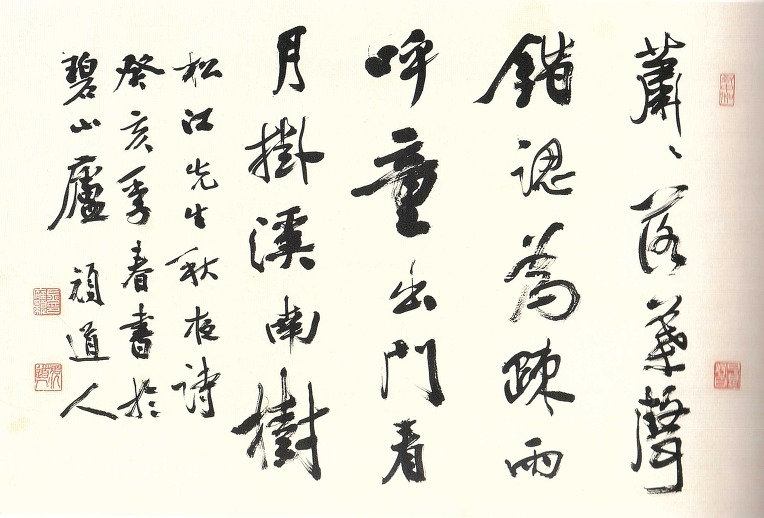 蕭〻落葉聲
錯認為疎雨
呼童出門看
月掛溪南樹
松江先生秋夜詩
癸亥季春書於
碧山廬 頑道人